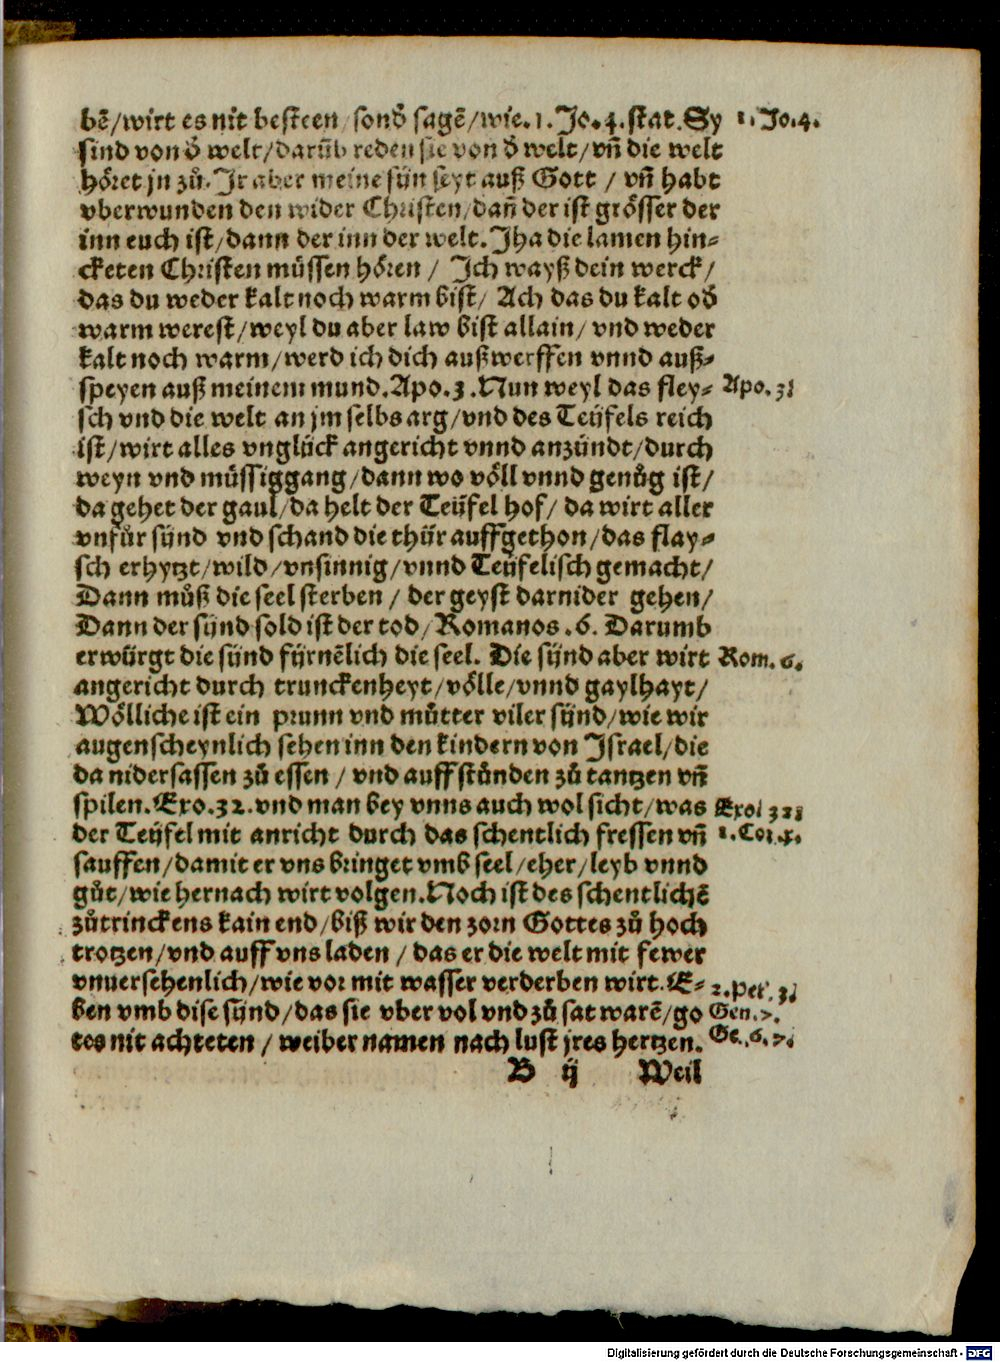 bē/wirt es nit besteen/sonď sagē/wie.1.Jo.4.stat.Sy 1.Jo.4.
sind von ď welt/darūb reden sie von ď welt/vñ die welt
höret jn zů.Jr aber meine sün seyt auß Gott / vñ habt
vberwunden den wider Christen/dañ der ist grösser der
inn euch ist/dann der inn der welt.Jha die lamen hin⸗
cketen Christen müssen hören / Jch wayß dein werck/
das du weder kalt noch warm bist/ Ach das du kalt oď
warm werest/weyl du aber law bist allain/ vnd weder
kalt noch warm/werd ich dich außwerffen vnnd auß⸗
speyen auß meinem mund.Apo.3.Nun weyl das fley⸗ Apo.3.
sch vnd die welt an jm selbs arg/vnd des Teüfels reich
ist/wirt alles vnglück angericht vnnd anzündt/durch
weyn vnd müssiggang/dann wo völl vnnd genůg ist/
da gehet der gaul/da helt der Teüfel hof/ da wirt aller
vnfůr sünd vnd schand die thür auffgethon/das flay⸗
sch erhytzt/wild/vnsinnig/vnnd Teüfelisch gemacht/
Dann můß die seel sterben / der geyst darnider gehen/
Dann der sünd sold ist der tod/Romanos.6. Darumb
erwürgt die sünd fürnēlich die seel. Die sünd aber wirt Rom.6.
angericht durch trunckenheyt/völle/vnnd gaylhayt/
Wölliche ist ein prunn vnd můtter viler sünd/wie wir
augenscheynlich sehen inn den kindern von Jsrael/die
da nidersassen zů essen / vnd auffstůnden zů tantzen vñ
spilen.Exo.32.vnd man bey vnns auch wol sicht/was Exo.32.
der Teüfel mit anricht durch das schentlich fressen vñ 1.Cor.x.
sauffen/damit er vns bringet vmb seel/eher/leyb vnnd
gůt/wie hernach wirt volgen.Noch ist des schentlichē
zůtrinckens kain end/biß wir den zorn Gottes zů hoch
trotzen/vnd auff vns laden / das er die welt mit fewer
vnuersehenlich/wie vor mit wasser verderben wirt.E⸗ 2.Pet.3.
ben vmb dise sünd/das sie vber vol vnd zů sat warē/go Gen.7.
tes nit achteten / weiber namen nach lust jres hertzen. Ge.6.7.
B ij Weil
Digitalisierung gefördert durch die Deutsche Forschungsgemeinschaft - DFG